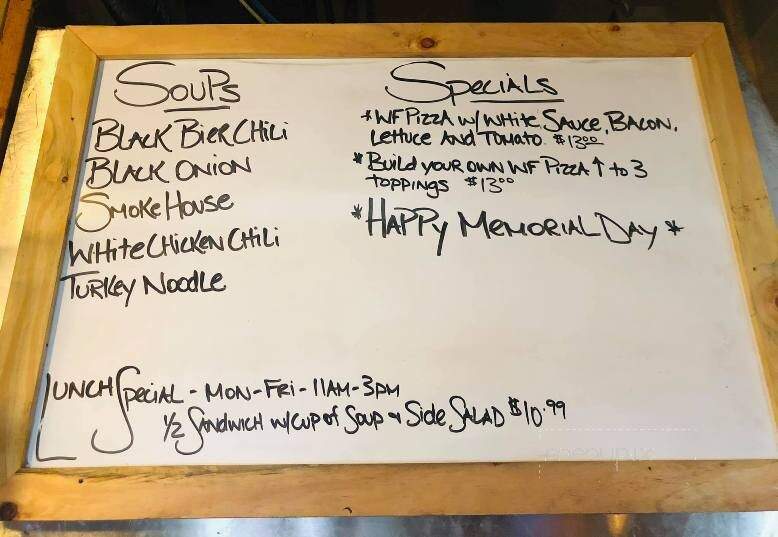 Soups
Black Bier Chili
Black Onion
SmokeHouse
White Chicken Chili
Turkey Noodle
Specials
*WF Pizza w/ White Sauce, Bacon,
Lettuce And Tomato. $13.00
*Build your own WF Pizza ↑ to 3
toppings $13.00
*Happy Memorial Day*
Lunch Special - Mon-Fri - 11AM-3PM
1/2 Sandwich w/ Cup of Soup & Side Salad $10.99